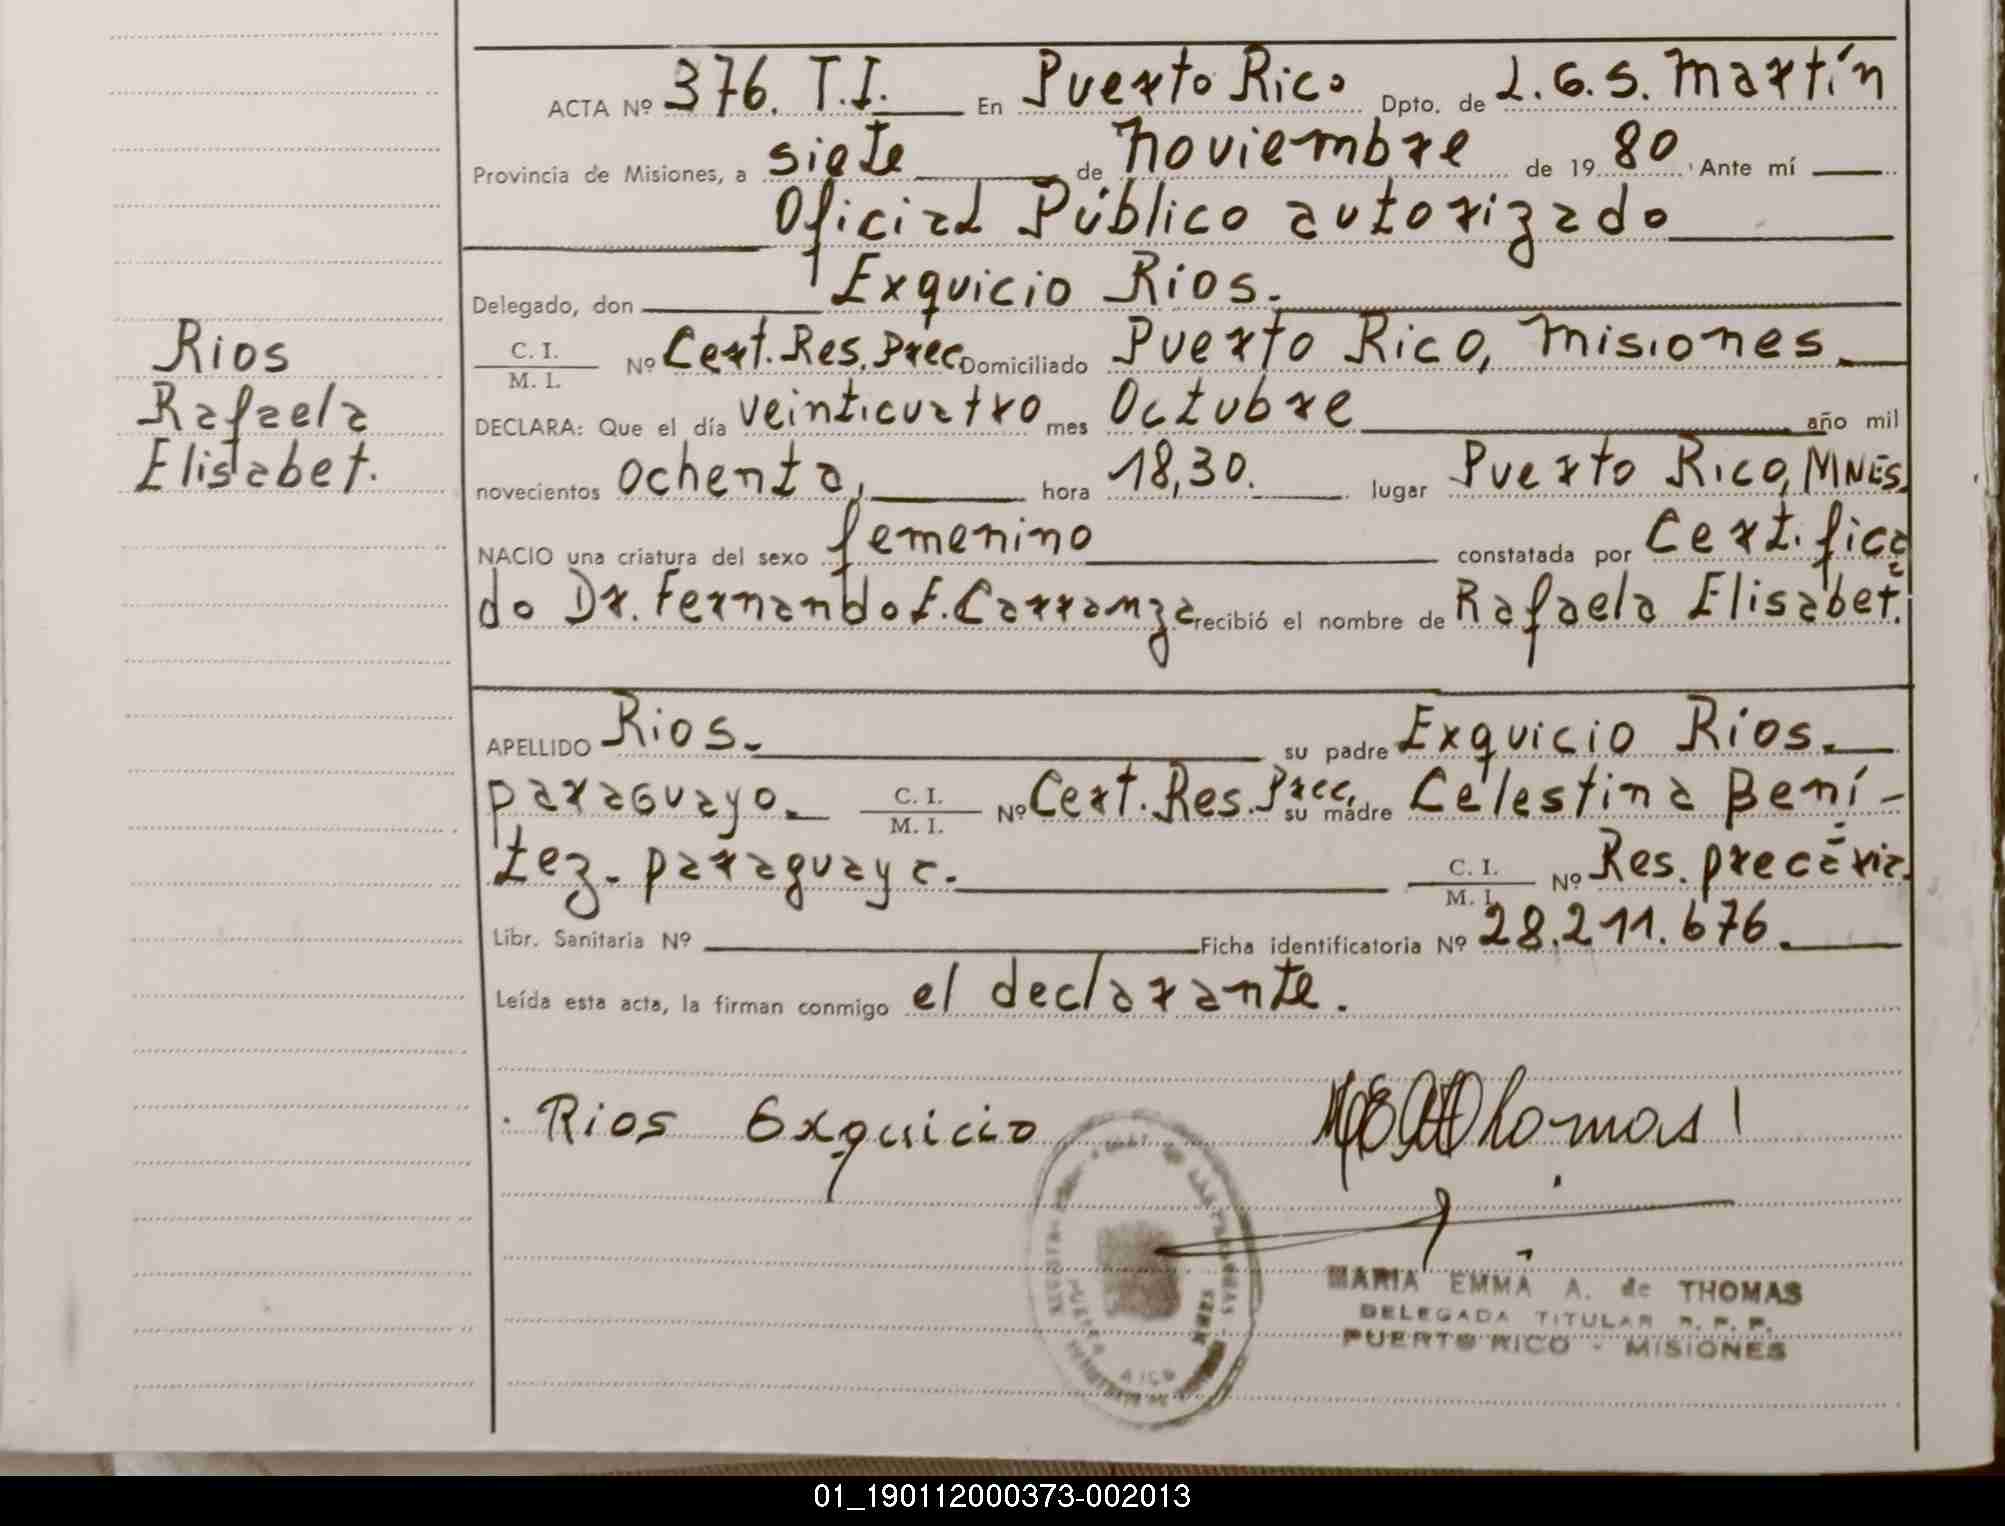 ACTA Nº 376. T.I. En Puerto Rico Dpto. de L.G.S. Martín
Provincia de Misiones, a siete de noviembre de 19 80. Ante mí
Oficial Público autorizado
Delegado, don Exquicio Rios.
C. I. / M. I. Nº Cert. Res. Prec. Domiciliado Puerto Rico, Misiones
Rios
Rafaela
Elisabet.
DECLARA: Que el día veinticuatro mes Octubre año mil
novecientos ochenta, hora 18,30. lugar Puerto Rico, MNES.
NACIO una criatura del sexo femenino constatada por Certifica
do Dr. Fernando E. Carranza recibió el nombre de Rafaela Elisabet.
APELLIDO Rios. su padre Exquicio Ríos.
paraguayo. C. I. / M. I. Nº Cert. Res. Prec. su madre Celestina Bení-
tez. paraguaya. C. I. / M. I. Nº Res. precária.
Libr. Sanitaria Nº Ficha identificatoria Nº 28.211.676.
Leída esta acta, la firman conmigo el declarante.
Rios Exquicio
MARIA EMMA A. de THOMAS
DELEGADA TITULAR R. P. P.
PUERTO RICO - MISIONES
01_190112000373-002013